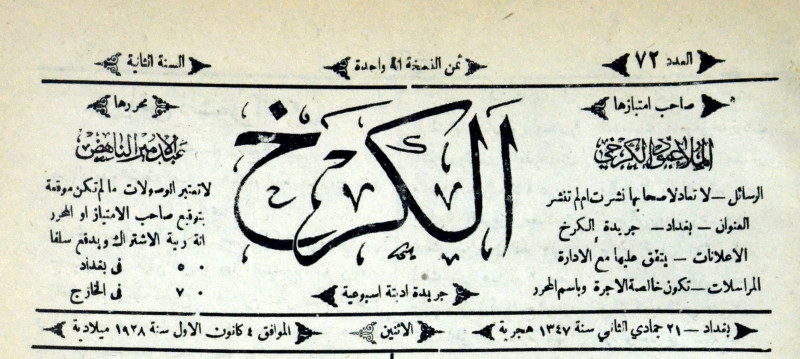 العدد ٧٢
ثمن النسخة انة واحدة
السنة الثانية
صاحب امتيازها
الملا عبود الكرخي
الرسائل — لا تعاد لاصحابها نشرت ام لم تنشر
العنوان — بغداد — جريدة الكرخ
الاعلانات — يتفق عليها مع الادارة
المراسلات — تكون خالصة الاجرة وباسم المحرر
الكرخ
جريدة ادبية اسبوعية
محررها
عبد الامير الناهض
لا تعتبر الوصولات ما لم تكن موقعة
بتوقيع صاحب الامتياز او المحرر
انة ربية الاشتراك ويدفع سلفا
٠ ٥ فى بغداد
٠ ٧ فى الخارج
بغداد — ٢١ جمادي الثاني سنة ١٣٤٧ هجرية
الاثنين
الموافق ٤ كانون الاول سنة ١٩٢٨ ميلادية